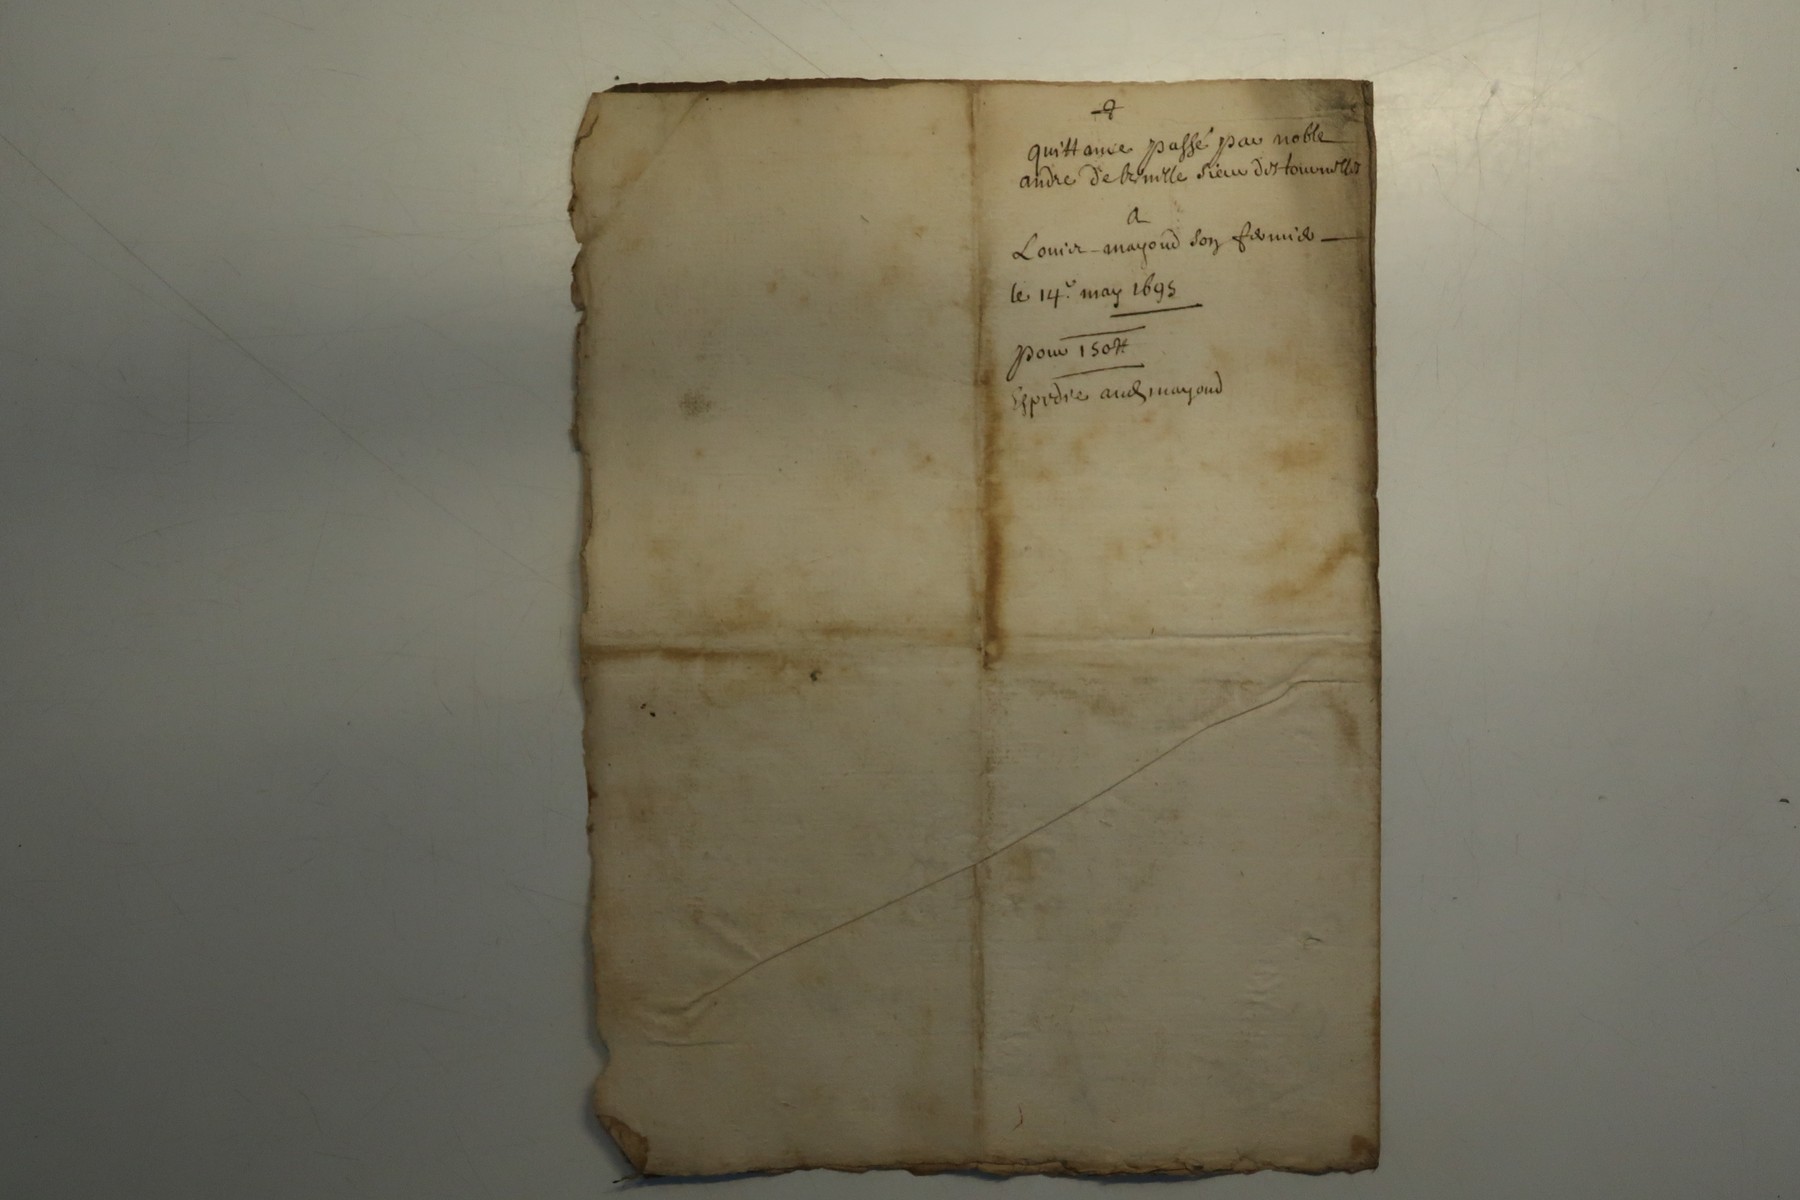 quittance passé par noble
andre de sieur des tournelles
a
Louis mayoud son fermier
le 14e may 1695
pour 150 ₶
Expedie aud mayoud